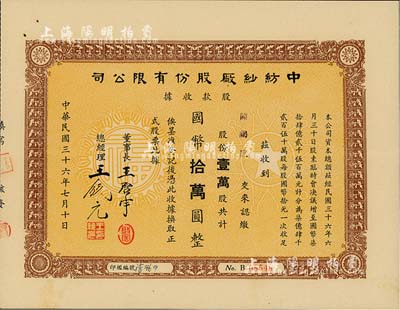 上海陽明拍賣
中紡紗廠股份有限公司
股款收據
本公司資本總額茲經民國三十六年六
月三十日股東臨時會決議增至國幣柒
拾肆億貳千伍百萬元計分為柒億肆千
貳百伍十萬股每股國幣拾元一次收足
茲收到
交來認繳
股份壹萬股共計
國幣拾萬圓整
俟呈准登記後憑此收據換取正
式股票此據
董事長 王啓宇
總經理
中華民國三十六年七月十日
No. B